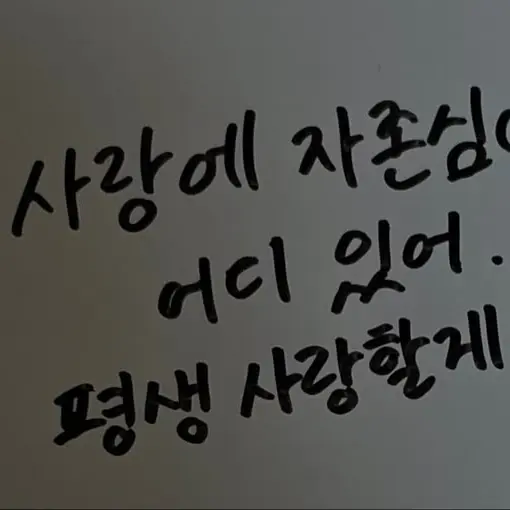 사랑에 자존심이
어디 있어.
평생 사랑할게